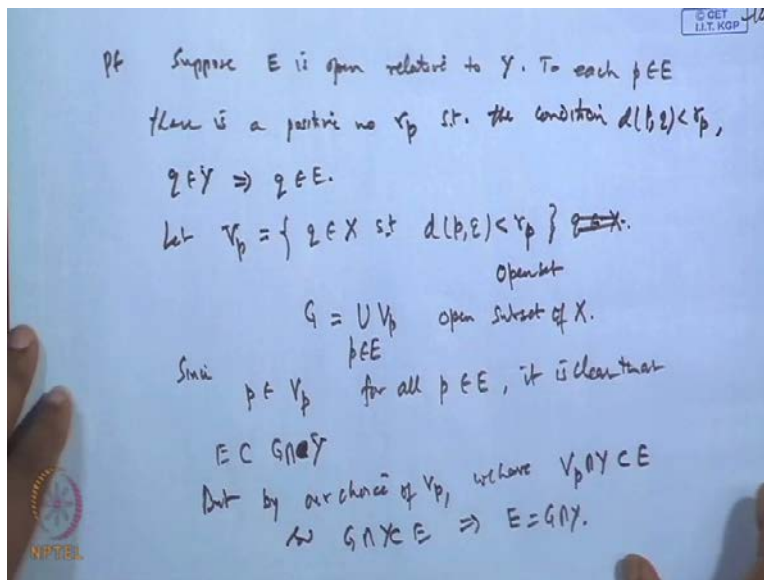 © CET
I.I.T. KGP
Pf Suppose E is open relative to Y. To each p ∈ E
there is a positive no r_p s.t. the condition d(p,q) < r_p,
q ∈ Y ⇒ q ∈ E.
Let V_p = { q ∈ X s.t d(p,q) < r_p }
open set
G = ∪ V_p open subset of X.
p∈E
Since p ∈ V_p for all p ∈ E, it is clear that
E ⊂ G∩Y
But by our choice of V_p, we have V_p ∩ Y ⊂ E
so G ∩ Y ⊂ E ⇒ E = G∩Y.
NPTEL